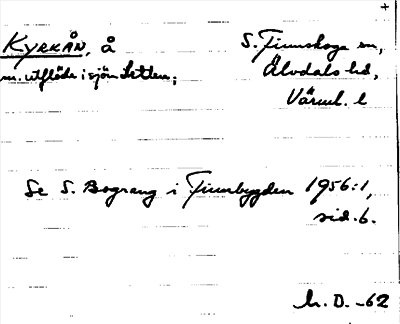 +
KYRKÅN, å
S. Finnskoga sn,
m. utflöde i sjön Letten;
Älvdals hd,
Värml. l
Se S. Bograng i Finnbygden 1956:1,
sid. 6.
h. D. -62